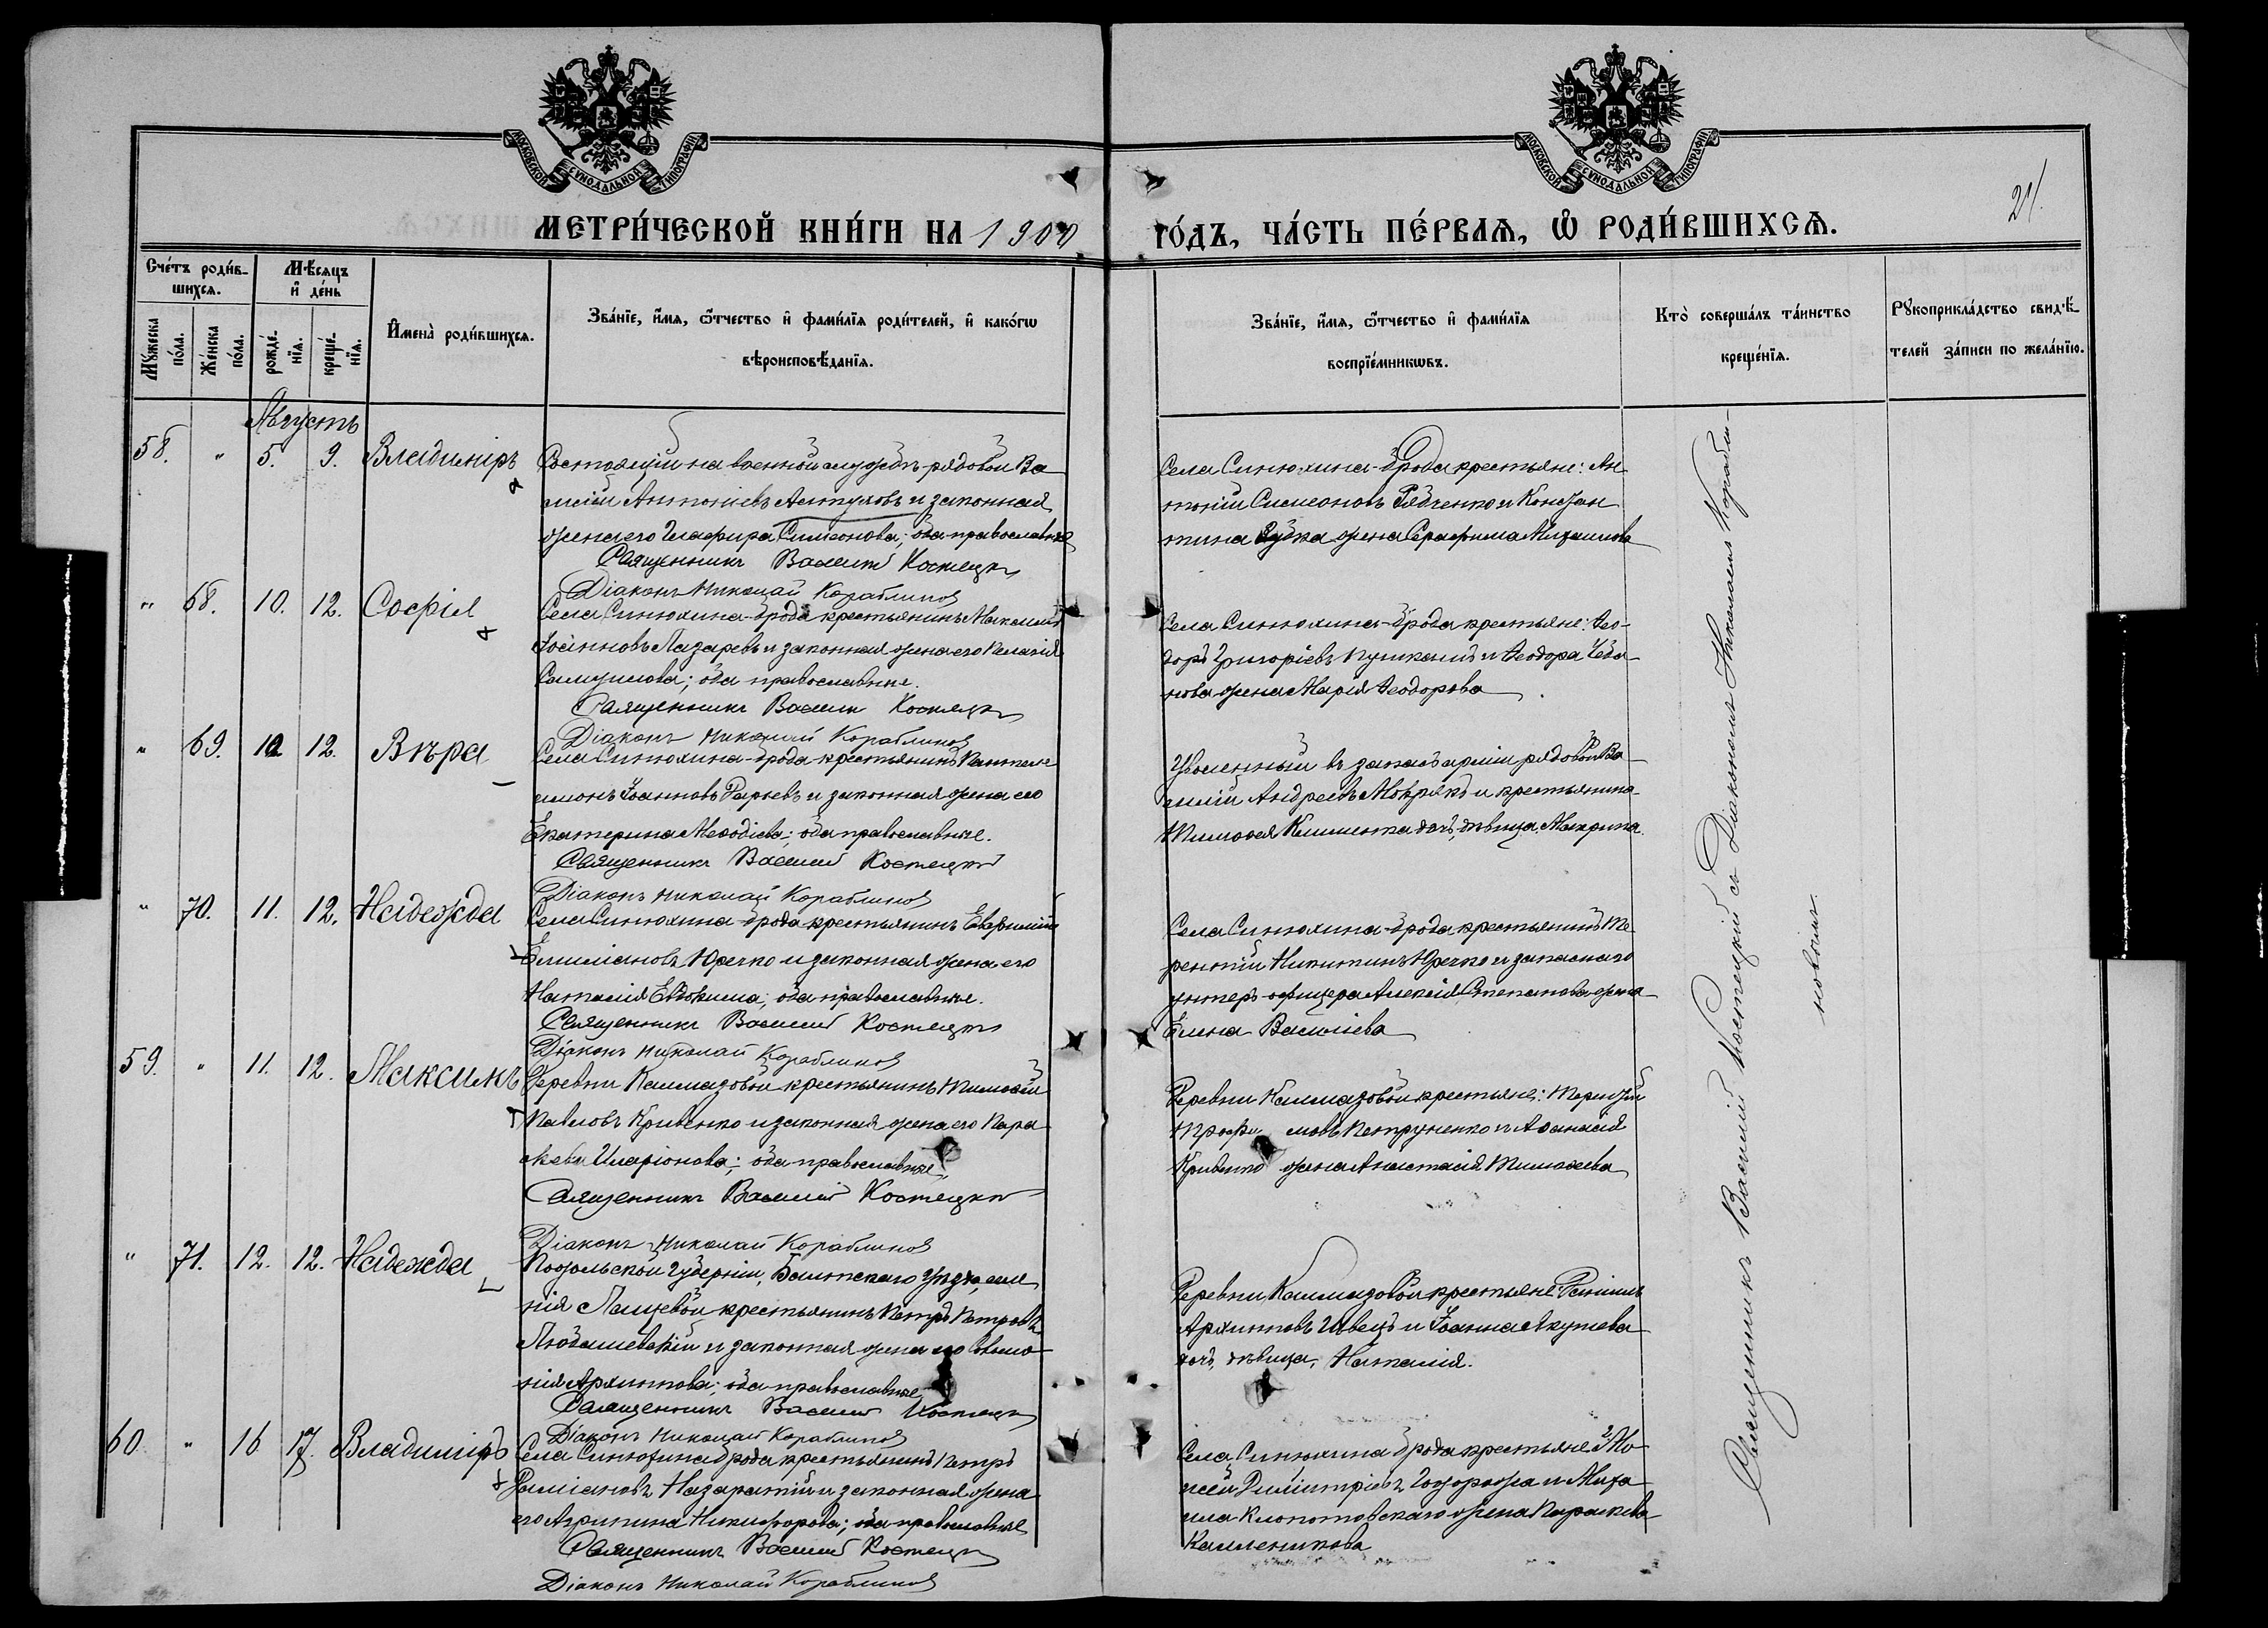 МОСКОВСКОЙ СѴНОДАЛЬНОЙ ТИПОГРАФІИ
МОСКОВСКОЙ СѴНОДАЛЬНОЙ ТИПОГРАФІИ
21.
МЕТРИ́ЧЕСКОЙ КНИ́ГИ НА 1900
ГО́ДЪ, ЧА́СТЬ ПЕ́РВАѦ, Ѽ РОДИ́ВШИХСѦ.
Сче́тъ роди́в-
шихсѧ.
Мѣ́сяцъ
и҆ де́нь
Мꙋ́жеска
по́ла.
Же́нска
по́ла.
рожде́-
нїѧ.
креще́-
нїѧ.
И҆мена̀ роди́вшихсѧ.
Зва́нїе, и҆́мѧ, ѻ҆́тчество и҆ фами́лїѧ роди́телей, и҆ како́гѡ
вѣроисповѣ́данїѧ.
Зва́нїе, и҆́мѧ, ѻ҆́тчество и҆ фами́лїѧ
воспрїе́мникѡвъ.
Кто̀ соверша́лъ та́инство
креще́нїѧ.
Рꙋкоприкла́дство свидѣ́-
телей за́писи по жела́нїю.
Августъ
58. " 5. 9. Владиміръ
Состоящій на военной службѣ рядовой Ва
силій Антоніевъ Алтуховъ и законная
жена его Глафира Симеонова; оба православные
Священникъ Василій Костецкій
Діаконъ Николай Кораблиновъ
Села Синюхина-Брода крестьяне: Ан
тоній Симеоновъ Рябченко и Констан
тина жена Серафима Михаилова
" 68. 10. 12. Софія
Села Синюхина-Брода крестьянинъ
Іоанновъ Лазаревъ и законная жена его Пелагія
Самуилова; оба православные.
Священникъ Василій Костецкій
Діаконъ Николай Кораблиновъ
Села Синюхина-Брода крестьяне: Ѳео-
доръ Григоріевъ и Ѳеодора Чеба-
нова жена Марія Ѳеодорова
" 69. 10 12. Вѣра
Села Синюхина-Брода крестьянинъ Пантеле
имонъ Іоанновъ и законная жена его
Екатерина Меѳодіева; оба православные.
Священникъ Василій Костецкій
Діаконъ Николай Кораблиновъ
Уволенный въ запасъ арміи рядовой Ва
силій Андреевъ Мокрякъ и крестьянина
Тимоѳея Клименка дочь, дѣвица, Макрина.
" 70. 11. 12. Надежда
Села Синюхина-Брода крестьянинъ Евфимій
Емиліановъ Юречко и законная жена его
Наталія Евдокима; оба православные.
Священникъ Василій Костецкій
Діаконъ Николай Кораблиновъ
Села Синюхина-Брода крестьянинъ Те
рентій Никитинъ Юречко и запаснаго
унтеръ-офицера Алексія Степанова жена
Елена Василіева
59. " 11. 12. Максимъ
Деревни Калмазовой крестьянинъ Тимоѳей
Павловъ Кривенко и законная жена его Пара
скева Иларіонова; оба православные
Священникъ Василій Костецкій
Діаконъ Николай Кораблиновъ
Деревни Калмазовой крестьяне: Терентій
Петруненко и Аѳанасія
Кривенко жена Анастасія Тимоѳеева
" 71. 12. 12. Надежда
Подольской губерніи, Балтскаго уѣзда, селе
нія крестьянинъ Петръ Петровъ
Любашевскій и законная жена его
Архиппова; оба православные
Священникъ Василій Костецкій
Діаконъ Николай Кораблиновъ
Деревни Калмазовой крестьяне:
Архипповъ Швецъ и Іоанна Якушева
дочь, дѣвица, Наталія.
60. " 16 17. Владиміръ
Села Синюхина Брода крестьянинъ Петръ
Даміановъ Назаратій и законная жена
его Агрипина Никифорова; оба православные
Священникъ Василій Костецкій
Діаконъ Николай Кораблиновъ
Села Синюхина Брода крестьяне: Мо
исей Димитріевъ и Миха
ила Клопотовскаго жена Параскева
Каллиникова
Священникъ Василій Костецкій съ Діакономъ Николаемъ Корабли-
новымъ.